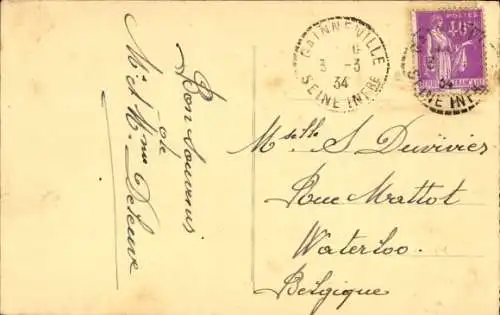 Bon Souvenir
de
M. et Mme Deleuve
GAINNEVILLE
3 -3
34
SEINE INFRE
POSTES
40c
34
Melle S. Duvivier
Rue Mattot
Waterloo.
Belgique